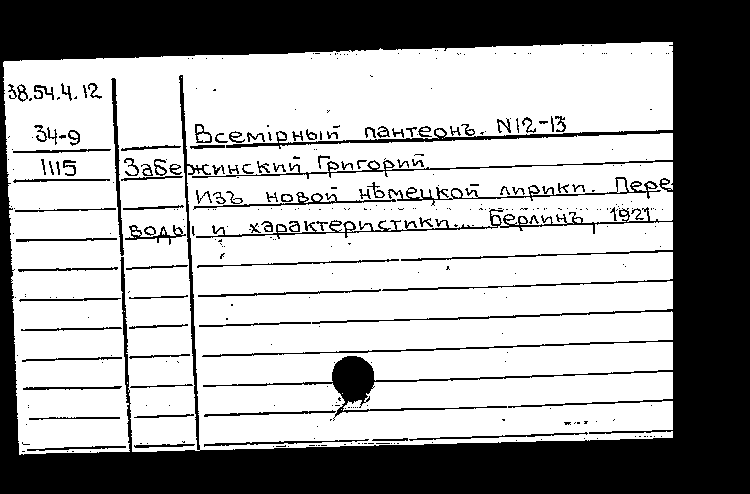 38.54.4.12
34-9 Всемірный пантеонъ. N12-13
1115 Забежинский, Григорий.
Изъ новой нѣмецкой лирики. Пере
воды и характеристики... Берлинъ, 1921.